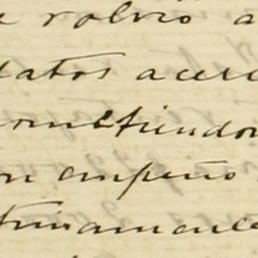 e volvió a
datos acer
ometiendo
on empeño
timamente